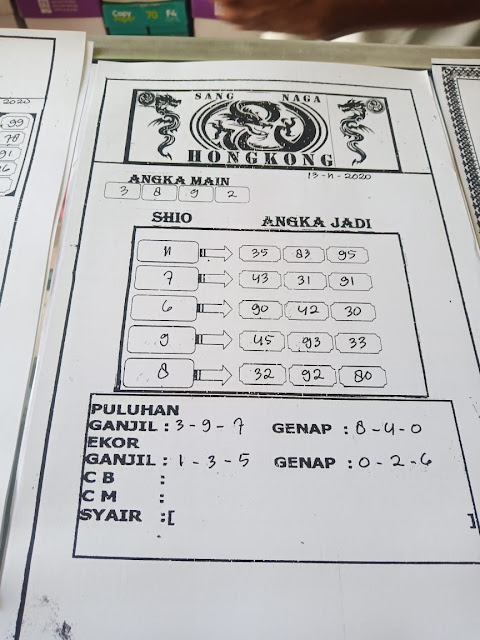 Copy
70
F4
2020
99
78
91
SANG NAGA
HONGKONG
13-11-2020
ANGKA MAIN
3 8 9 2
SHIO ANGKA JADI
11 35 83 95
7 43 31 91
6 90 42 30
9 45 93 33
8 32 92 80
PULUHAN
GANJIL : 3-9-7 GENAP : 8-4-0
EKOR
GANJIL : 1-3-5 GENAP : 0-2-6
C B :
C M :
SYAIR :[ ]